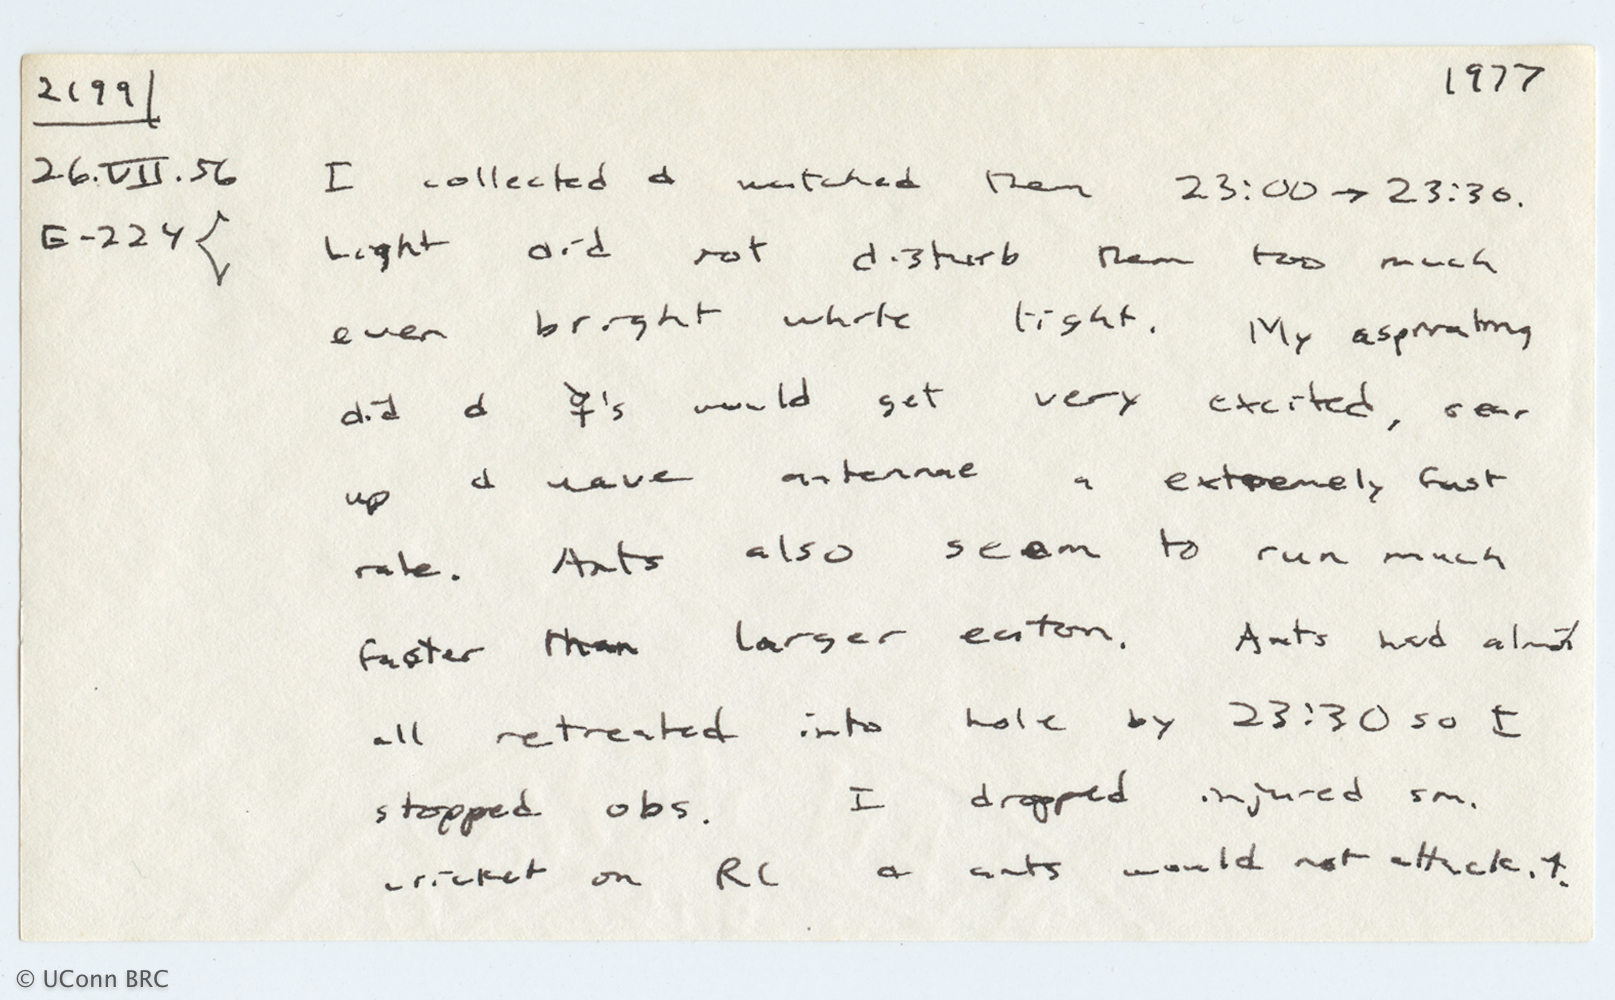 2199 1977
26.VII.56 I collected & watched them 23:00 → 23:30.
E-224 { Light did not disturb them too much
even bright white light. My aspirating
did & ☿'s would get very excited, rear
up & wave antennae a extremely fast
rate. Ants also seem to run much
faster than larger eciton. Ants had almost
all retreated into hole by 23:30 so I
stopped obs. I dropped injured sm.
cricket on RC & ants would not attack it.
© UConn BRC